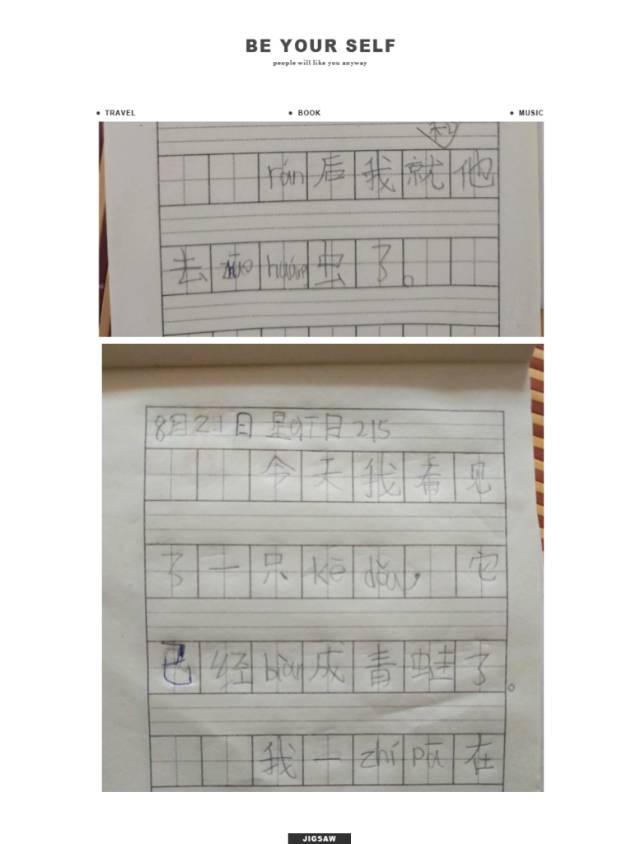 BE YOUR SELF
people will like you anyway
TRAVEL BOOK MUSIC
rán后我就他
去zhuō huáng虫了。
8月21日 星期日 215
今天我看见
了一只kē dǒu，它
已经biàn成青蛙了。
我一zhí pā在
JIGSAW